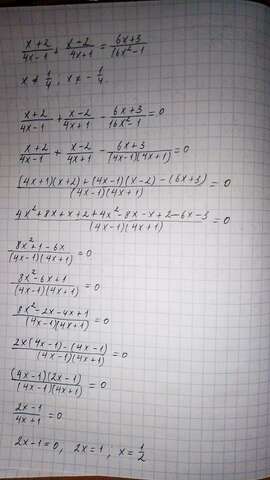 (x+2)/(4x-1) + (x-2)/(4x+1) = (6x+3)/(16x²-1)
x ≠ 1/4, x ≠ -1/4.
(x+2)/(4x-1) + (x-2)/(4x+1) - (6x+3)/(16x²-1) = 0
(x+2)/(4x-1) + (x-2)/(4x+1) - (6x+3)/((4x-1)(4x+1)) = 0
((4x+1)(x+2)+(4x-1)(x-2)-(6x+3))/((4x-1)(4x+1)) = 0
(4x²+8x+x+2+4x²-8x-x+2-6x-3)/((4x-1)(4x+1)) = 0
(8x²+1-6x)/((4x-1)(4x+1)) = 0
(8x²-6x+1)/((4x-1)(4x+1)) = 0
(8x²-2x-4x+1)/((4x-1)(4x+1)) = 0
(2x(4x-1)-(4x-1))/((4x-1)(4x+1)) = 0
((4x-1)(2x-1))/((4x-1)(4x+1)) = 0
(2x-1)/(4x+1) = 0
2x-1=0, 2x=1; x=1/2